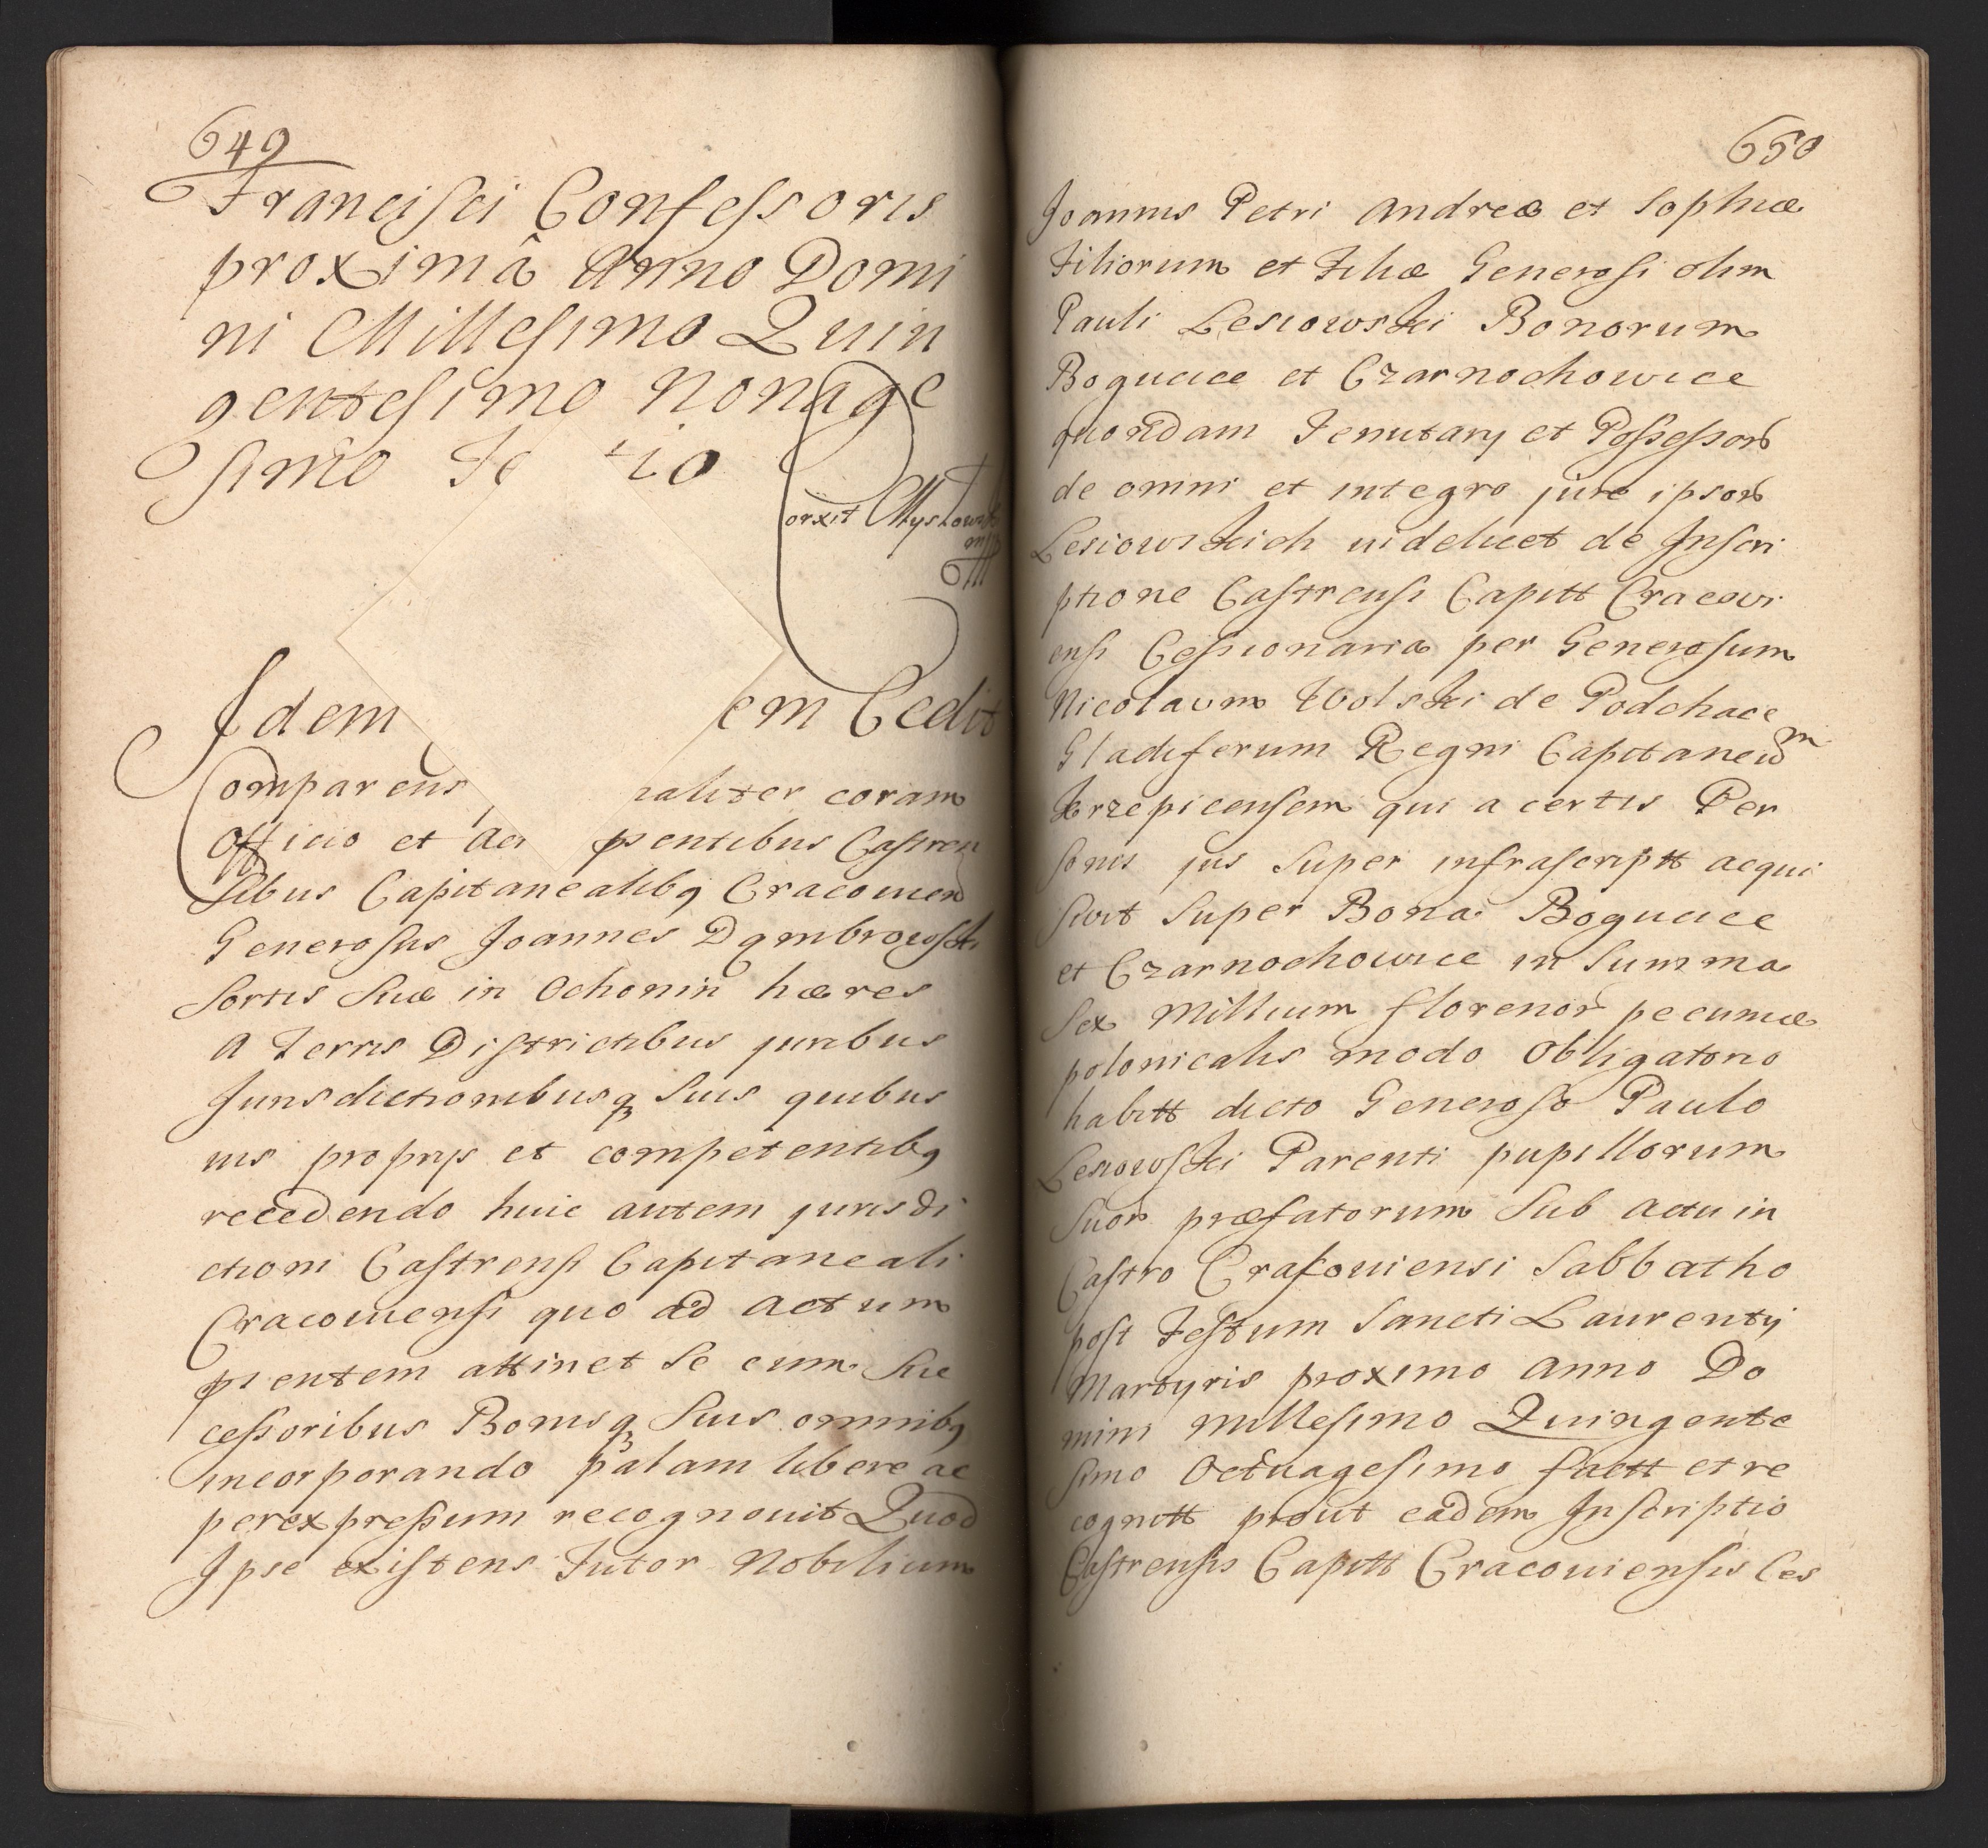 649
Francisci Confessoris
proximâ Anno Domi
ni Millesimo Quin
gentesimo Nonage
simo Te tio
orxit
Idem em Cedit
Comparens naliter coram
Officio et Act pentibus Castren
sibus Capitanealibq Cracovien
Generosus Joannes Dąmbrowski
Sortis Suæ in Ochonin hæres
A Terris Districtibus juribus
Jurisdictionibusq Suis quibus
vis proprijs et competentibq
recedendo huic autem jurisdi
ctioni Castrensi Capitaneali
Cracoviensi quo ad actum
pntem attinet Se cum Suc
cessoribus Bonisq Suis omnibq
incorporando palam libere ac
per expressum recognovit Quod
Ipse existens Tutor Nobilium
650
Joannis Petri Andreæ et Sophiæ
Filiorum et Filiæ Generosi olim
Pauli Lesiowski Bonorum
Bogucice et Czarnochowice
quondam Tenutarij et Possessor
de omni et integro jure ipsor
Lesiowskich videlicet de Inscri
ptione Castrensi Capitt Cracovi
ensi Cessionaria per Generosum
Nicolaum Wolski de Podhace
Gladiferum Regni Capitaneum
Krzepicensem qui a certis Per
sonis jus Super infrascriptt acqui
sivit Super Bona Bogucice
et Czarnochowice in Summa
Sex Millium florenor pecuniæ
polonicalis modo Obligatorio
habitt dicto Generoso Paulo
Lesiowski Parenti pupillorum
Suor præfatorum Sub actu in
Castro Crakoviensi Sabbatho
post Festum Sancti Laurentij
Martyris proximo Anno Do
mini Millesimo Quingente
simo Octuagesimo factt et re
cognitt prout eadem Inscriptio
Castrensis Capitt Cracoviensis Ces